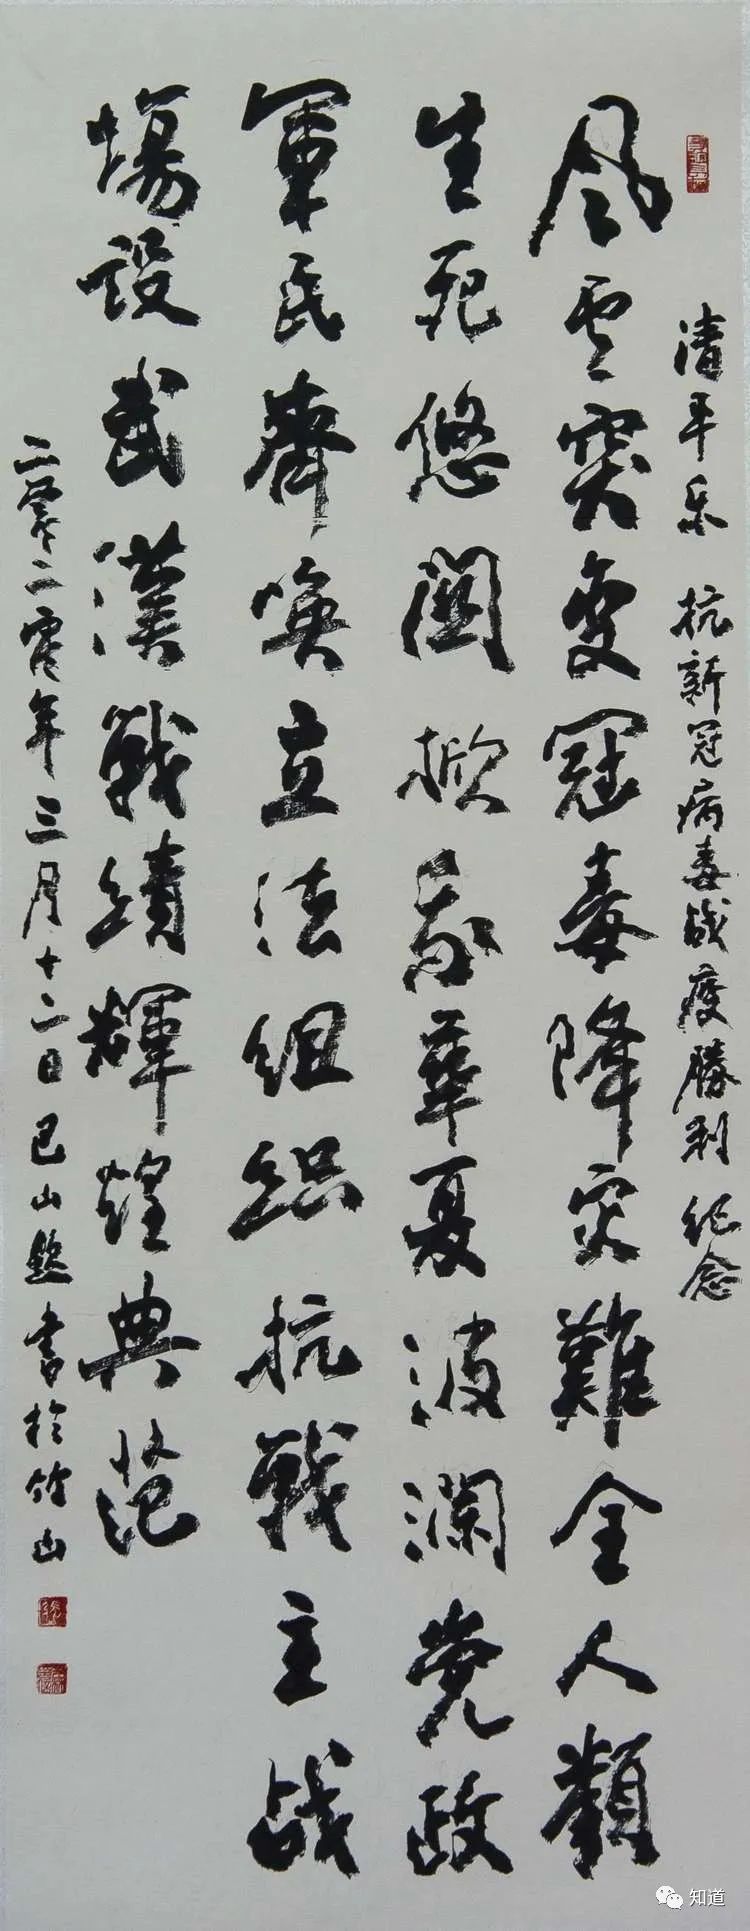 清平乐 抗新冠病毒战疫勝利纪念
风云突变冠毒降灾難全人類
生死悠閑掀我華夏波澜党政
軍民齊唤立法组织抗戰主战
塲設武漢戰績輝煌典范
二零二零年三月十二日巴山愁書於竹山
知道